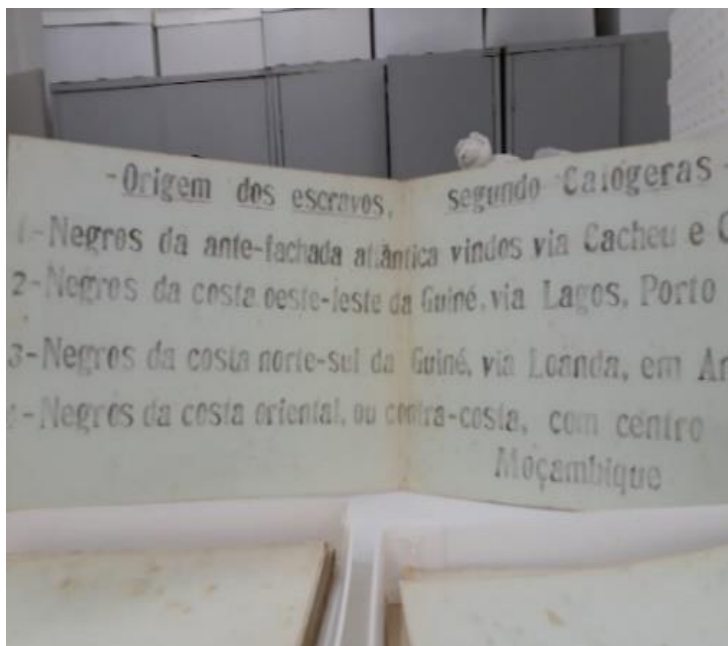 -Origem dos escravos, segundo Calógeras-
1-Negros da ante-fachada atlântica vindos via Cacheu e
2-Negros da costa oeste-leste da Guiné, via Lagos, Porto
3-Negros da costa norte-sul da Guiné, via Loanda, em
-Negros da costa oriental, ou contra-costa, com centro
Moçambique